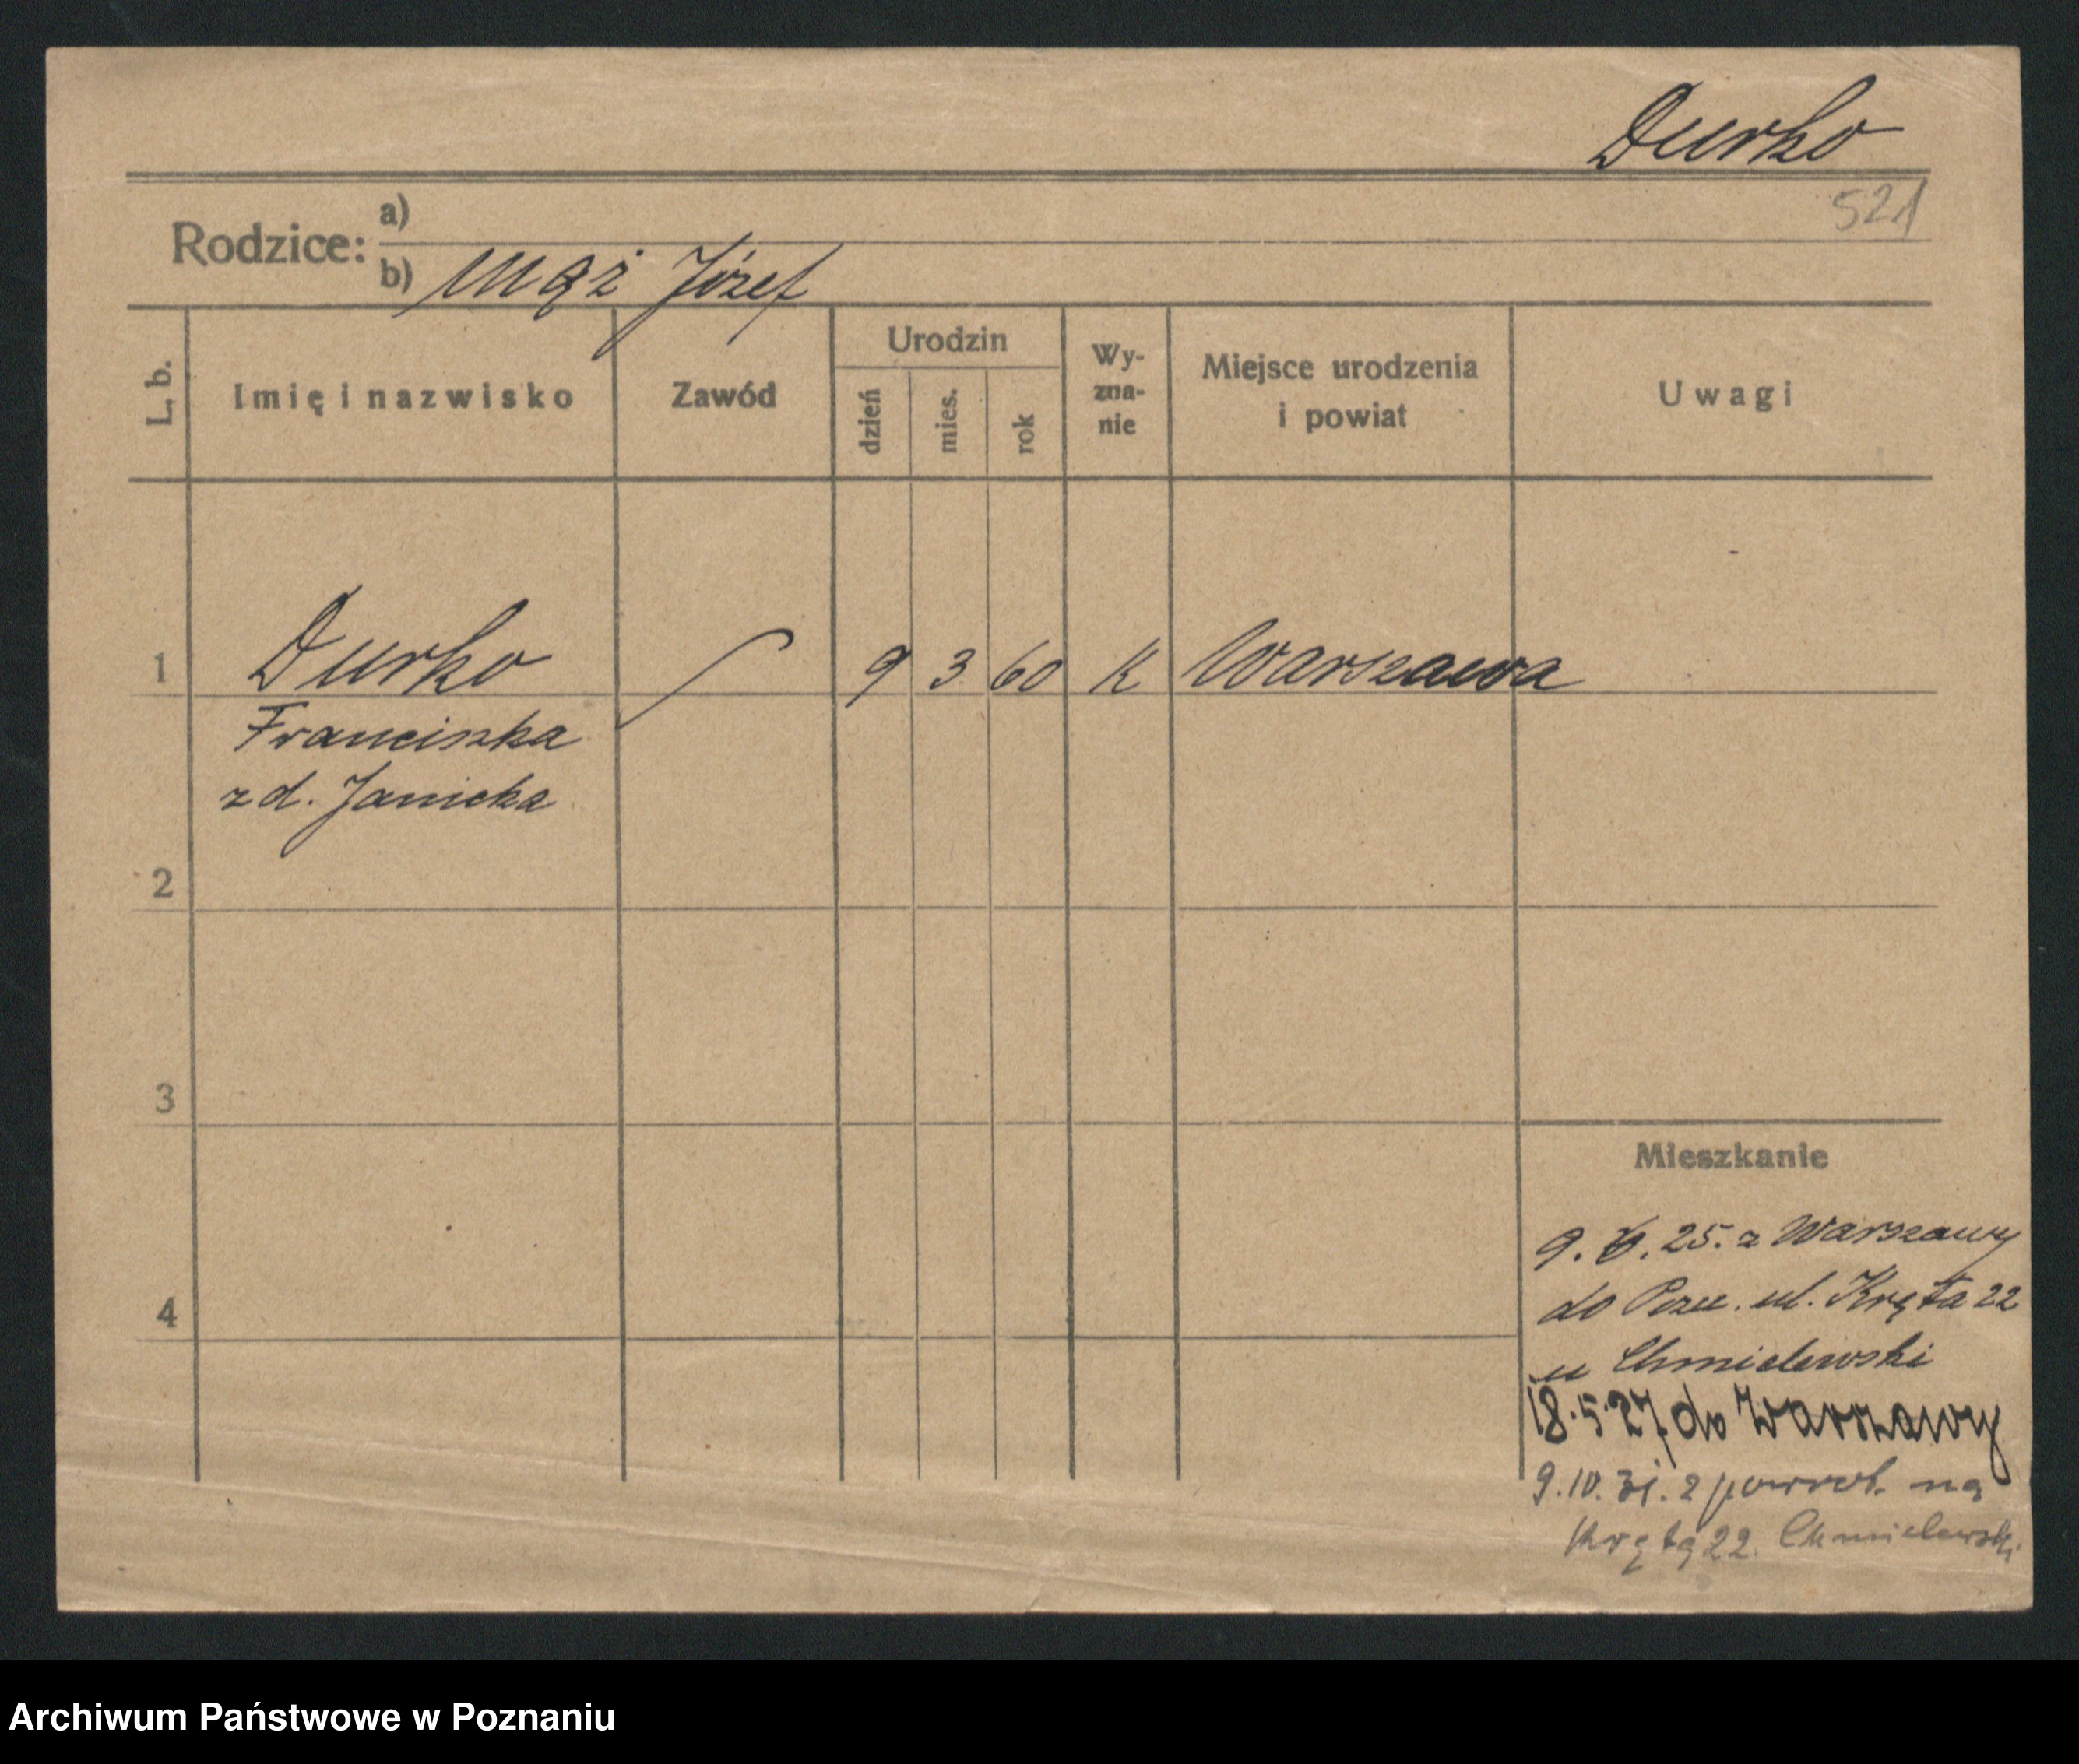 Durko
521
Rodzice: a)
b) Mąż Józef
L. b.
Imię i nazwisko
Zawód
Urodzin
dzień
mies.
rok
Wy-
zna-
nie
Miejsce urodzenia
i powiat
Uwagi
1 Durko 9 3 60 K Warszawa
Franciszka
z d. Janicka
2
3
4
Mieszkanie
9. 25. z Warszawy
do Pozn. ul. Kręta 22
u Chmielewski
18.5.27 do Warszawy
9.10.31. z powrot. na
Krętą 22. Chmielewski
Archiwum Państwowe w Poznaniu